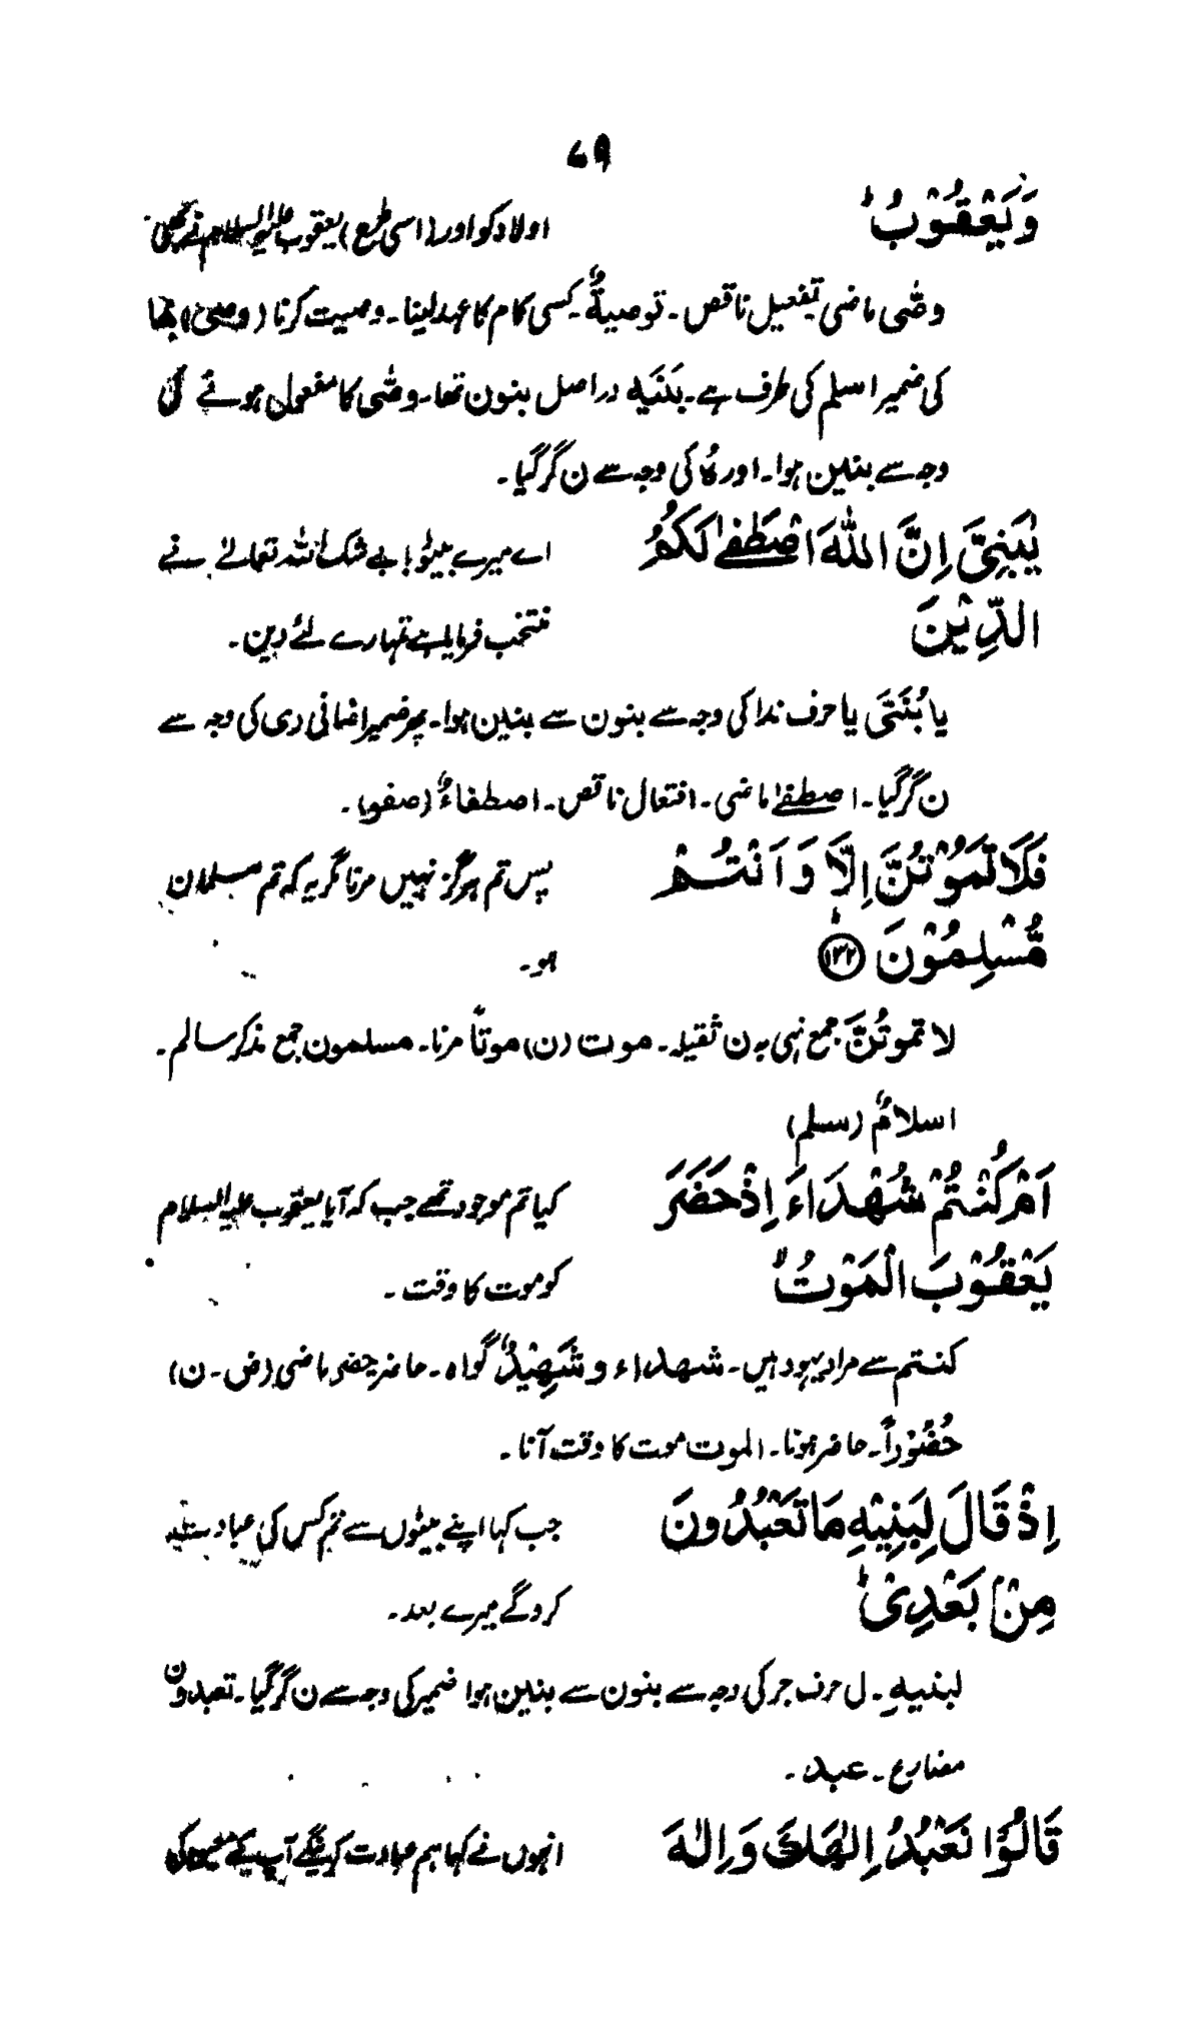 ۷۹
وَيَعْقُوْبُ ؕ اولاد کو اور (اسی طرح) یعقوب علیہ السلام نے بھی
وصّٰی ماضی تفعیل ناقص۔ توصیۃٌ۔ کسی کام کا عہد لینا۔ وصیت کرنا (وصی) بھا
کی ضمیر اسلم کی طرف ہے۔ بَنَیہ دراصل بنون تھا۔ وصّٰی کا مفعول ہونے کی
وجہ سے بنین ہوا۔ اور ہٗ کی وجہ سے ن گر گیا۔
يٰبَنِيَّ اِنَّ اللّٰهَ اصْطَفٰى لَكُمُ اے میرے بیٹو! بے شک اللہ تعالےٰ نے
الدِّيْنَ منتخب فرمایا ہے تمہارے لئے دین۔
یا بُنَتَی یا حرف ندا کی وجہ سے بنون سے بنین ہوا۔ پھر ضمیر اضافی دی کی وجہ سے
ن گر گیا۔ اصطفےٰ ماضی۔ افتعال ناقص۔ اصطفاءٌ (صفو)۔
فَلَا تَمُوْتُنَّ اِلَّا وَاَنْتُمْ پس تم ہرگز نہیں مرنا مگر یہ کہ تم مسلمان
مُّسْلِمُوْنَ ؕ ۱۳۲ ہو۔
لا تموتُنَّ جمع نہی بہ ن ثقیلہ۔ موت (ن) موتاً مرنا۔ مسلمون جمع مذکر سالم۔
اسلامٌ (سلم)
اَمْ كُنْتُمْ شُهَدَاءَ اِذْ حَضَرَ کیا تم موجود تھے جب کہ آیا یعقوب علیہ السلام
يَعْقُوْبَ الْمَوْتُ ۙ کو موت کا وقت۔
کنتم سے مراد یہود ہیں۔ شھداء و شَهِيْدٌ گواہ۔ حاضر حضر ماضی (ض۔ ن)
حُضُوْراً۔ حاضر ہونا۔ الموت موت کا وقت آنا۔
اِذْ قَالَ لِبَنِيْهِ مَا تَعْبُدُونَ جب کہا اپنے بیٹوں سے تم کس کی عبادت
مِنْۢ بَعْدِيْ ؕ کرو گے میرے بعد۔
لبنیہِ۔ ل حرف جر کی وجہ سے بنون سے بنین ہوا ضمیر کی وجہ سے ن گر گیا۔ تعبدون
مضارع۔ عبد۔
قَالُوْا نَعْبُدُ اِلٰهَكَ وَاِلٰهَ انہوں نے کہا ہم عبادت کرینگے آپ کے